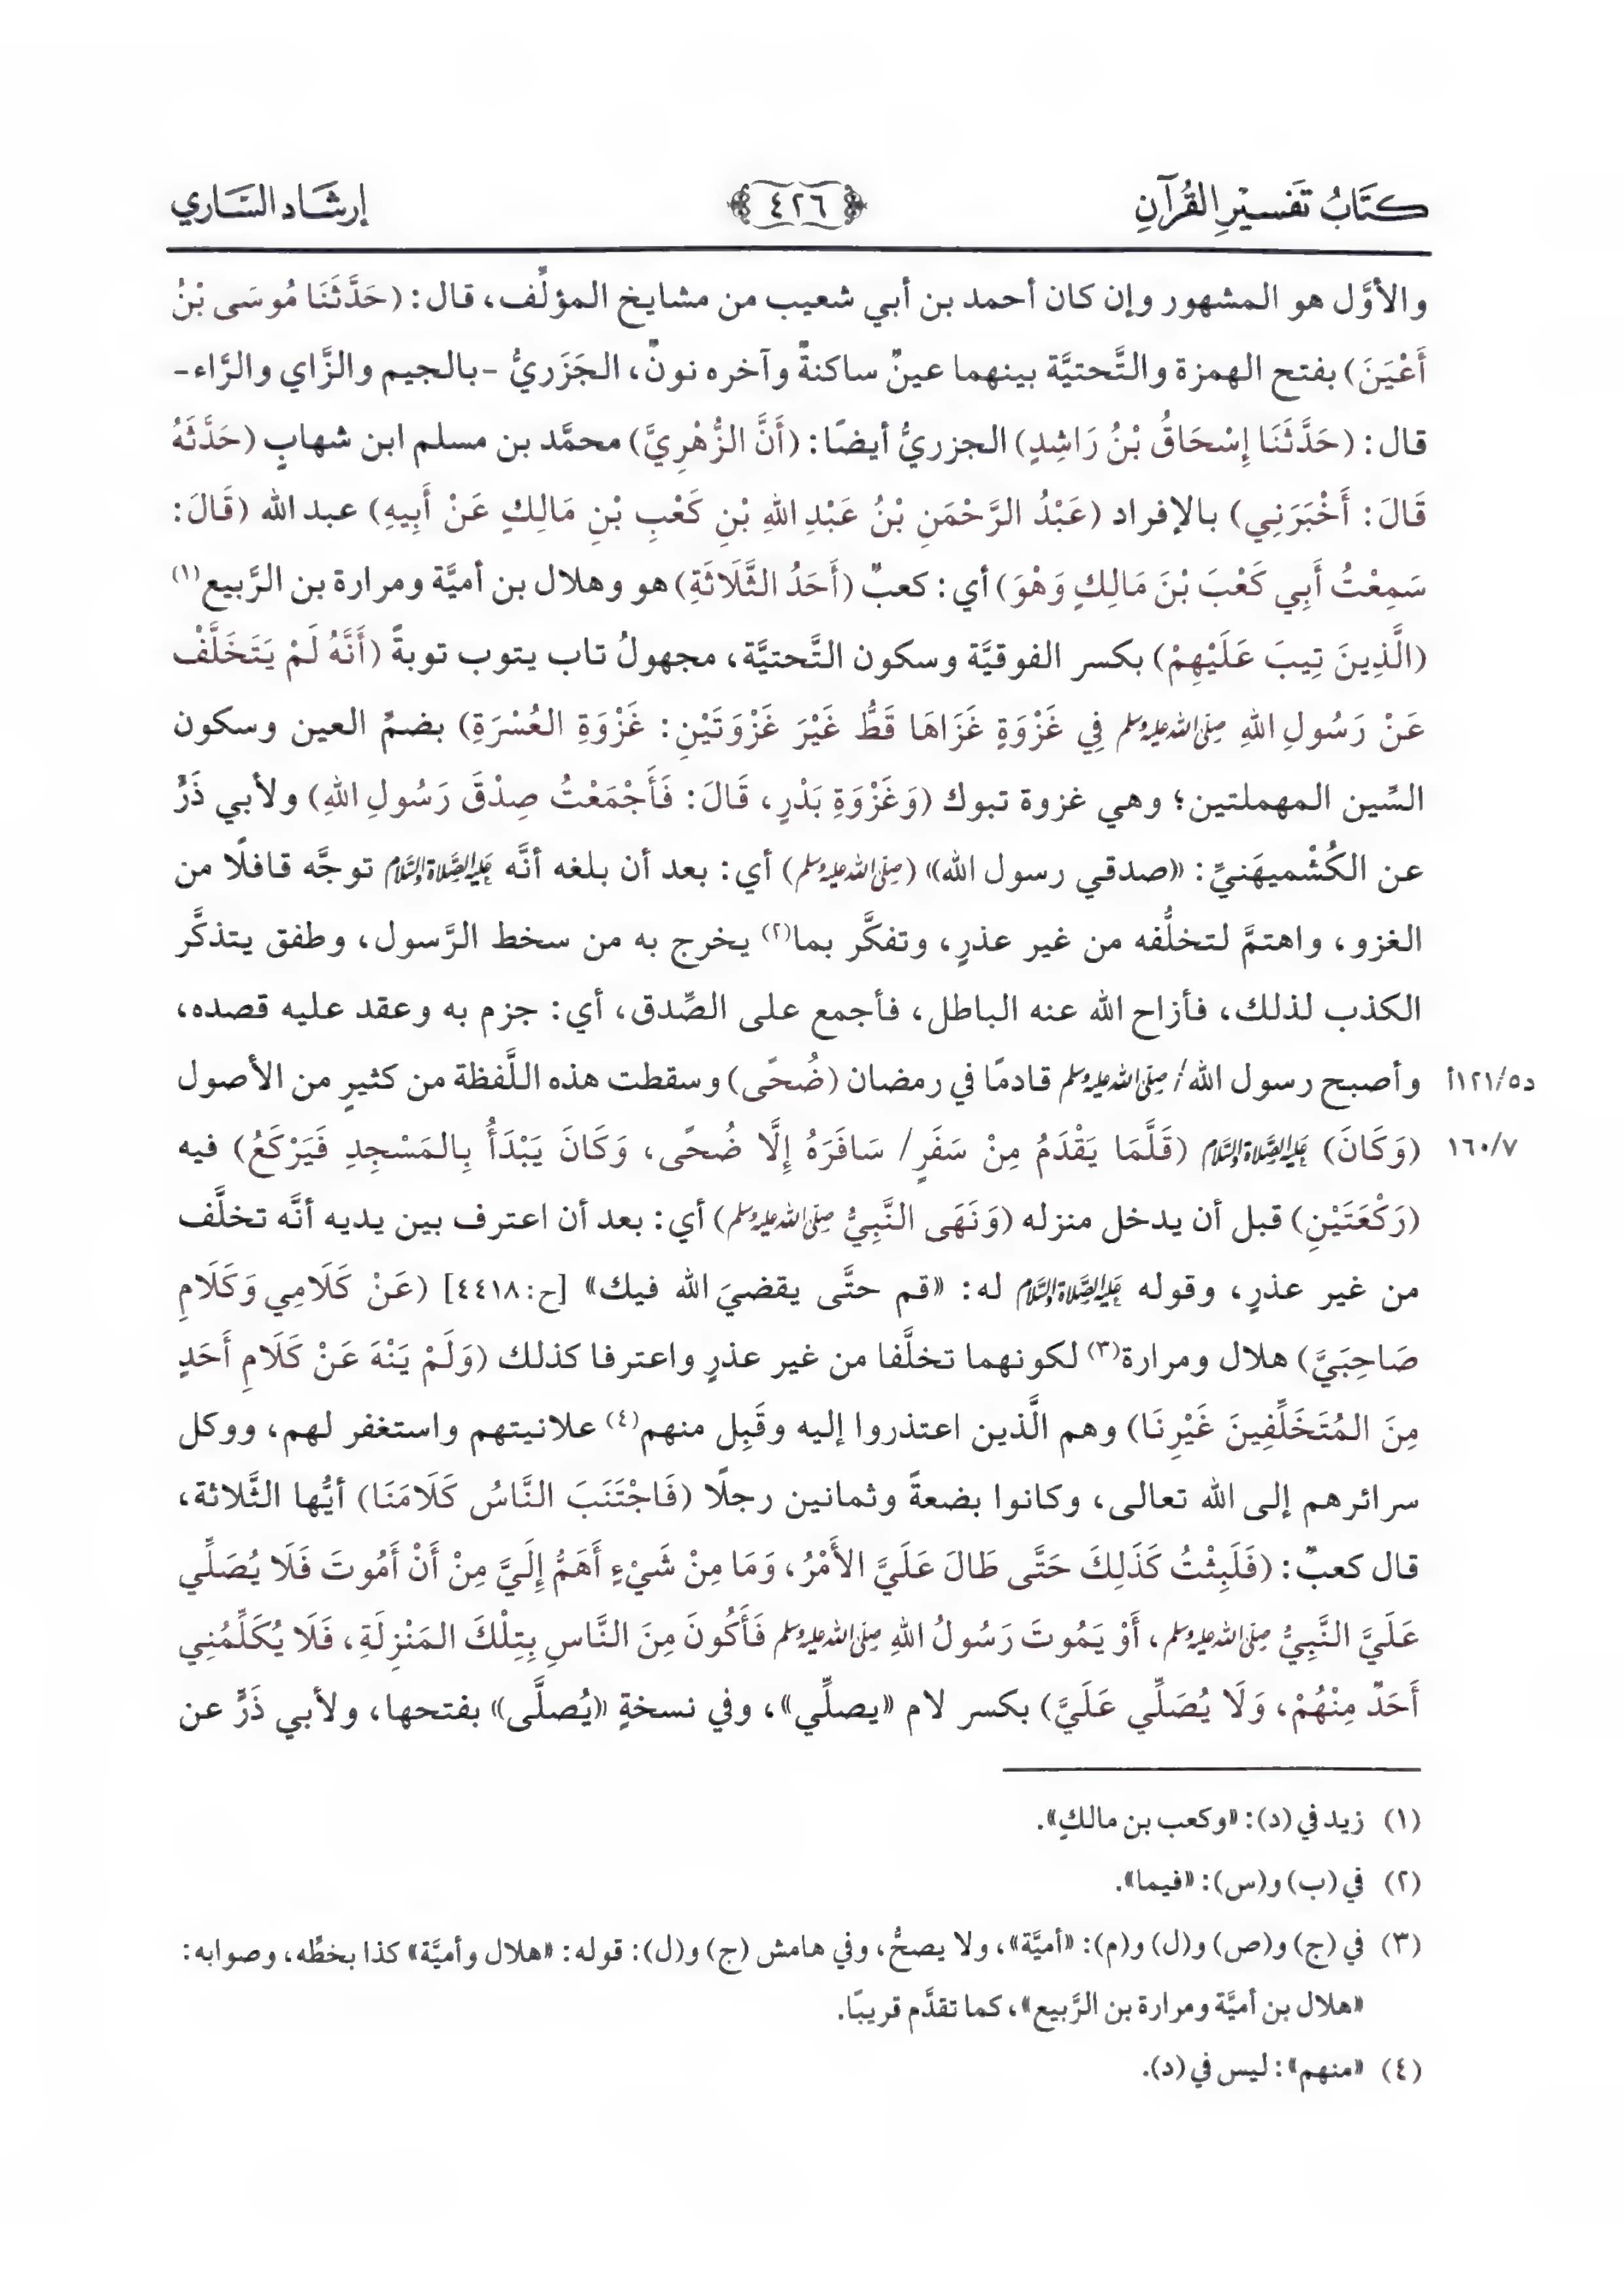 كتَابُ تَفسيْرِ القُرآنِ ٤٢٦ إرشَاد السَّاري
والأوَّل هو المشهور وإن كان أحمد بن أبي شعيب من مشايخ المؤلِّف، قال: (حَدَّثَنَا مُوسَى بْنُ
أَعْيَنَ) بفتح الهمزة والتَّحتيَّة بينهما عينٌ ساكنةٌ وآخره نونٌ، الجَزَريُّ -بالجيم والزَّاي والرَّاء-
قال: (حَدَّثَنَا إِسْحَاقُ بْنُ رَاشِدٍ) الجزريُّ أيضًا: (أَنَّ الزُّهْرِيَّ) محمَّد بن مسلم ابن شهابٍ (حَدَّثَهُ
قَالَ: أَخْبَرَنِي) بالإفراد (عَبْدُ الرَّحْمَنِ بْنُ عَبْدِ اللهِ بْنِ كَعْبِ بْنِ مَالِكٍ عَنْ أَبِيهِ) عبد الله (قَالَ:
سَمِعْتُ أَبِي كَعْبَ بْنَ مَالِكٍ وَهْوَ) أي: كعبٌ (أَحَدُ الثَّلَاثَةِ) هو وهلال بن أميَّة ومرارة بن الرَّبيع(١)
(الَّذِينَ تِيبَ عَلَيْهِمْ) بكسر الفوقيَّة وسكون التَّحتيَّة، مجهولُ تاب يتوب توبةً (أَنَّهُ لَمْ يَتَخَلَّفْ
عَنْ رَسُولِ اللهِ صلى الله عليه وسلم فِي غَزْوَةٍ غَزَاهَا قَطُّ غَيْرَ غَزْوَتَيْنِ: غَزْوَةِ العُسْرَةِ) بضمِّ العين وسكون
السِّين المهملتين؛ وهي غزوة تبوك (وَغَزْوَةِ بَدْرٍ، قَالَ: فَأَجْمَعْتُ صِدْقَ رَسُولِ اللهِ) ولأبي ذَرٍّ
عن الكُشْميهَنيِّ: «صدقي رسول الله» (صلى الله عليه وسلم) أي: بعد أن بلغه أنَّه عليه الصلاة والسلام توجَّه قافلًا من
الغزو، واهتمَّ لتخلُّفه من غير عذرٍ، وتفكَّر بما(٢) يخرج به من سخط الرَّسول، وطفق يتذكَّر
الكذب لذلك، فأزاح الله عنه الباطل، فأجمع على الصِّدق، أي: جزم به وعقد عليه قصده،
د١٢١/٥أ وأصبح رسول الله/ صلى الله عليه وسلم قادمًا في رمضان (ضُحًى) وسقطت هذه اللَّفظة من كثيرٍ من الأصول
١٦٠/٧ (وَكَانَ) عليه الصلاة والسلام (قَلَّمَا يَقْدَمُ مِنْ سَفَرٍ/ سَافَرَهُ إِلَّا ضُحًى، وَكَانَ يَبْدَأُ بِالمَسْجِدِ فَيَرْكَعُ) فيه
(رَكْعَتَيْنِ) قبل أن يدخل منزله (وَنَهَى النَّبِيُّ صلى الله عليه وسلم) أي: بعد أن اعترف بين يديه أنَّه تخلَّف
من غير عذرٍ، وقوله عليه الصلاة والسلام له: «قم حتَّى يقضيَ الله فيك» [ح: ٤٤١٨] (عَنْ كَلَامِي وَكَلَامِ
صَاحِبَيَّ) هلال ومرارة(٣) لكونهما تخلَّفا من غير عذرٍ واعترفا كذلك (وَلَمْ يَنْهَ عَنْ كَلَامِ أَحَدٍ
مِنَ المُتَخَلِّفِينَ غَيْرِنَا) وهم الَّذين اعتذروا إليه وقَبِل منهم(٤) علانيتهم واستغفر لهم، ووكل
سرائرهم إلى الله تعالى، وكانوا بضعةً وثمانين رجلًا (فَاجْتَنَبَ النَّاسُ كَلَامَنَا) أيُّها الثَّلاثة،
قال كعبٌ: (فَلَبِثْتُ كَذَلِكَ حَتَّى طَالَ عَلَيَّ الأَمْرُ، وَمَا مِنْ شَيْءٍ أَهَمُّ إِلَيَّ مِنْ أَنْ أَمُوتَ فَلَا يُصَلِّي
عَلَيَّ النَّبِيُّ صلى الله عليه وسلم، أَوْ يَمُوتَ رَسُولُ اللهِ صلى الله عليه وسلم فَأَكُونَ مِنَ النَّاسِ بِتِلْكَ المَنْزِلَةِ، فَلَا يُكَلِّمُنِي
أَحَدٌ مِنْهُمْ، وَلَا يُصَلِّي عَلَيَّ) بكسر لام «يصلِّي»، وفي نسخةٍ «يُصلَّى» بفتحها، ولأبي ذَرٍّ عن
(١) زيد في (د): «وكعب بن مالكٍ».
(٢) في (ب) و(س): «فيما».
(٣) في (ج) و(ص) و(ل) و(م): «أميَّة»، ولا يصحُّ، وفي هامش (ج) و(ل): قوله: «هلال وأميَّة» كذا بخطِّه، وصوابه:
«هلال بن أميَّة ومرارة بن الرَّبيع»، كما تقدَّم قريبًا.
(٤) «منهم»: ليس في (د).